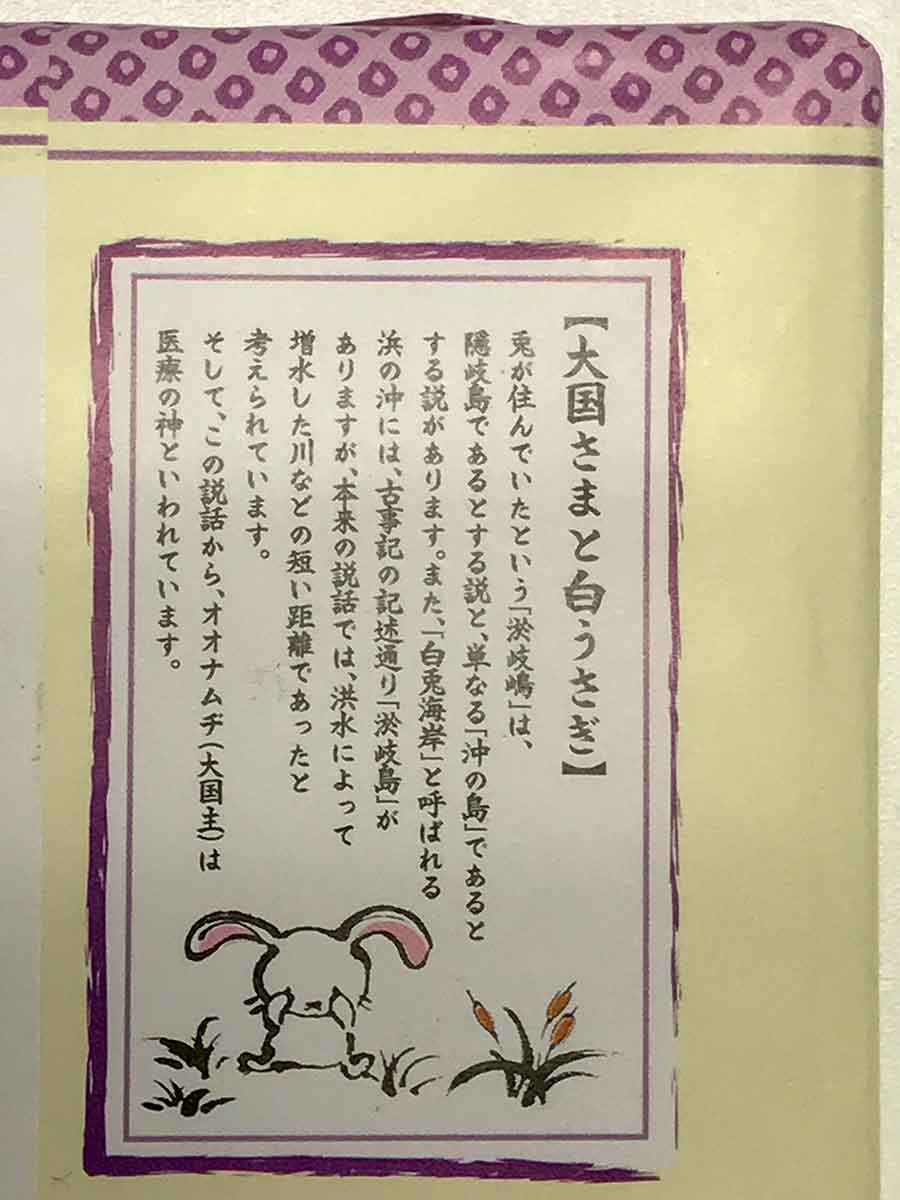 【大国さまと白うさぎ】
兎が住んでいたという「淤岐嶋」は、
隠岐島であるとする説と、単なる「沖の島」であると
する説があります。また、「白兎海岸」と呼ばれる
浜の沖には、古事記の記述通り「淤岐島」が
ありますが、本来の説話では、洪水によって
増水した川などの短い距離であったと
考えられています。
そして、この説話から、オオナムヂ(大国主)は
医療の神といわれています。